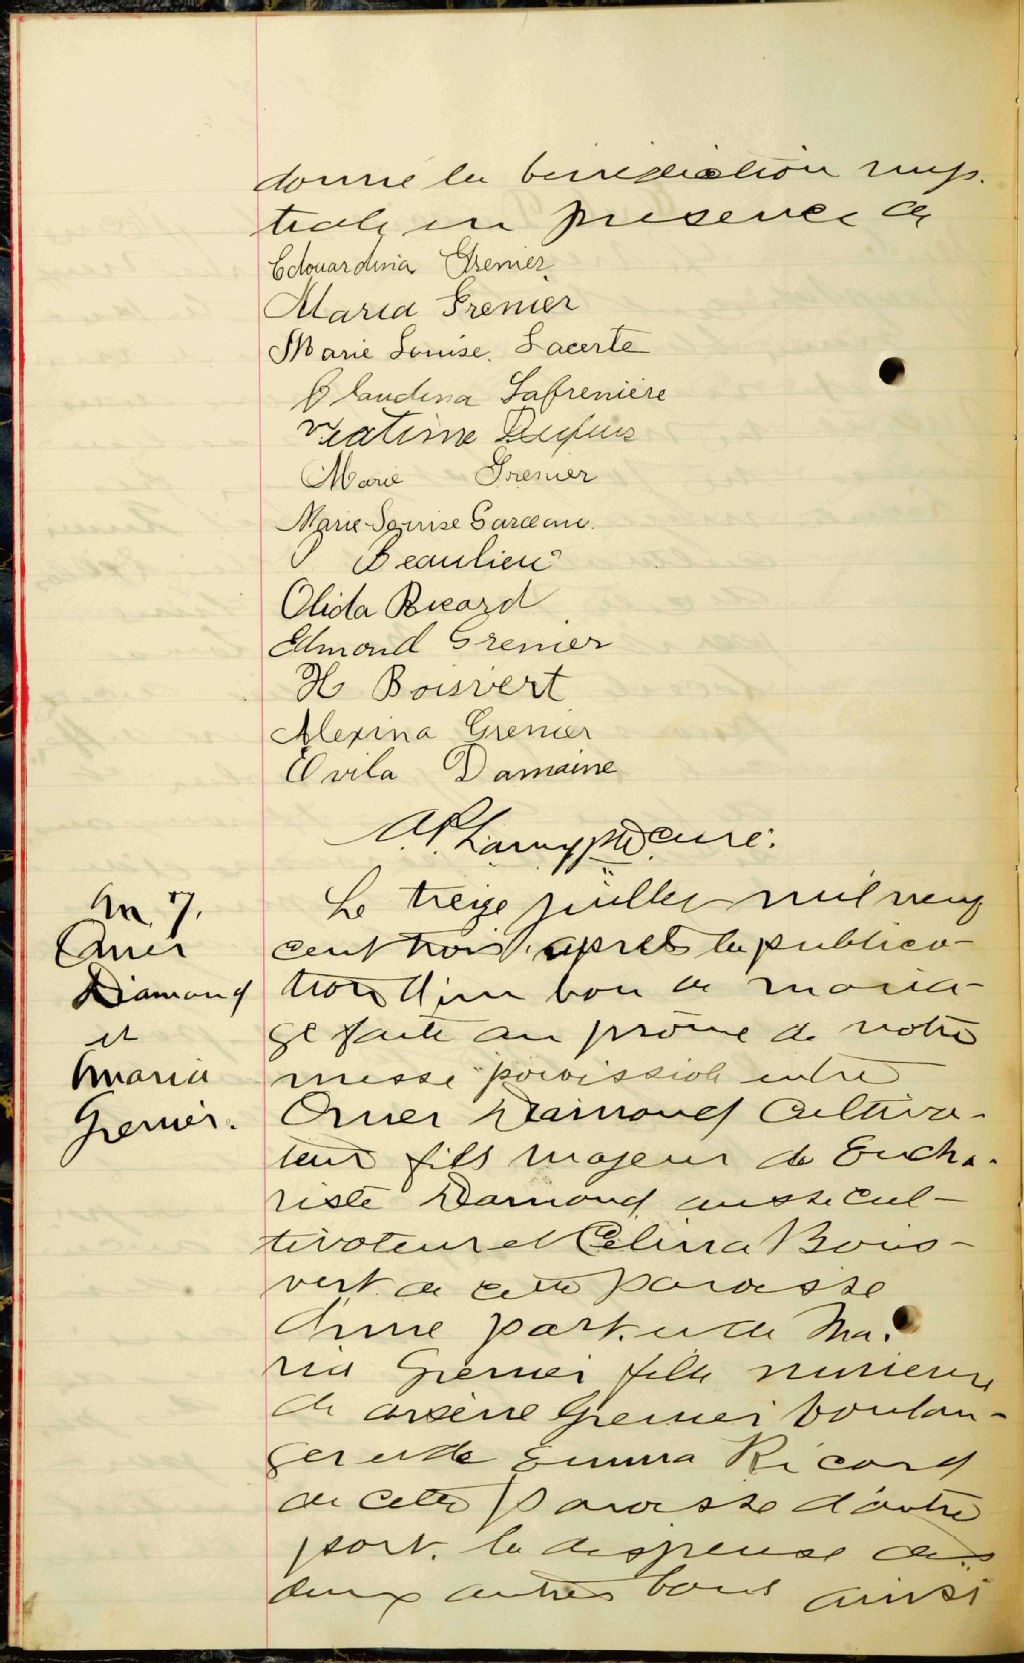 donné la bénédiction nup-
tiale en présence de
Edouardina Grenier
Maria Grenier
Marie Louise Lacerte
Blandina Lafrenière
Marie Grenier
Marie-Louise Garceau.
Beaulieu
Olida Ricard
Edmond Grenier
H Boisvert
Alexina Grenier
Ovila Damaine
A. P. Lamy ptre curé.
M 7.
Omer
Diamond
et
Maria
Grenier.
Le treize juillet mil neuf
cent trois, après la publica-
tion d'un ban de maria-
ge faite au prône de notre
messe paroissiale entre
Omer Diamond Cultiva-
teur fils majeur de Eucha-
riste Diamond aussi cul-
tivateur et Célina Bois-
vert de cette paroisse
d'une part. et de Ma-
ria Grenier fille mineure
de Arsène Grenier boulan-
ger et de Emma Ricard
de cette paroisse d'autre
part. la dispense des
deux autres bans ainsi